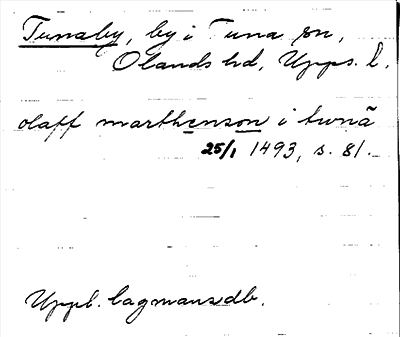 Tunaby, by i Tuna sn,
Olands hd, Upps. l.
olaff marthenson i twnā
25/1 1493, s. 81.
Uppl. lagmansdb.